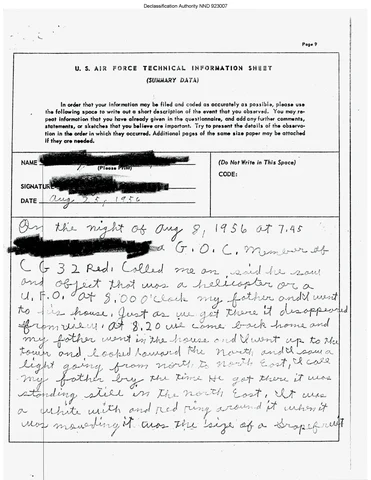 Declassification Authority NND 923007
Page 9
U. S. AIR FORCE TECHNICAL INFORMATION SHEET
(SUMMARY DATA)
In order that your information may be filed and coded as accurately as possible, please use
the following space to write out a short description of the event that you observed. You may re-
peat information that you have already given in the questionnaire, and add any further comments,
statements, or sketches that you believe are important. Try to present the details of the observa-
tion in the order in which they occurred. Additional pages of the same size paper may be attached
if they are needed.
NAME
(Please Print)
(Do Not Write in This Space)
CODE:
SIGNATURE
DATE Aug 25, 1956
On the night of Aug 8, 1956 at 7.45
a G.O.C. Member of
C G 32 Red. Called me an said he saw
and object that was a helicopter or a
U.F.O. at 8.00 o'clock my father and I went
to his house. Just as we got there it disappeared
from view. at 8.20 we come back home and
my father went in the house and I went up to the
tower and looked toward the north and I saw a
light going from north to north East, I call
my father by the time He got there it was
standing still in the north East, It was
a white with and red ring around it when it
was moveding it was the size of a Grapefruit